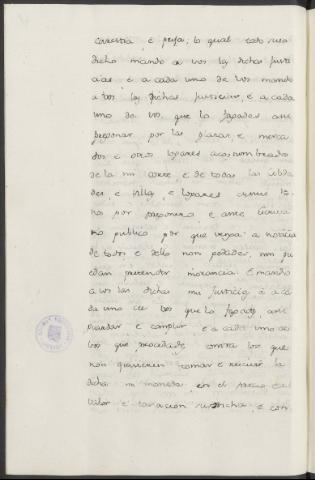 carestia, e prepa; lo qual todo suso
dicho mando a vos las dichas justi
cias e a cada uno de vos mando
a vos las dichas justicias, e a cada
uno de vos, que lo fagades ansi
pregonar por las plazas, e merca
dos e otros logares acostumbrados
de la mi corte e de todas las cibda
des, e villas, e logares
por pregonero, e ante Escriva
no publico por que venga a noticia
de todos e dello non podades, nin pu
edan pretender ynorancia. E mando
a vos las dichas mis justicias, e a ca
da uno de vos que lo fagades ansi
guardar e complir e a cada uno de
vos que procedades contra los que
non quisieren tomar e recivir la
dicha mi moneda en el precio e
valor e tasacion susodicha e con